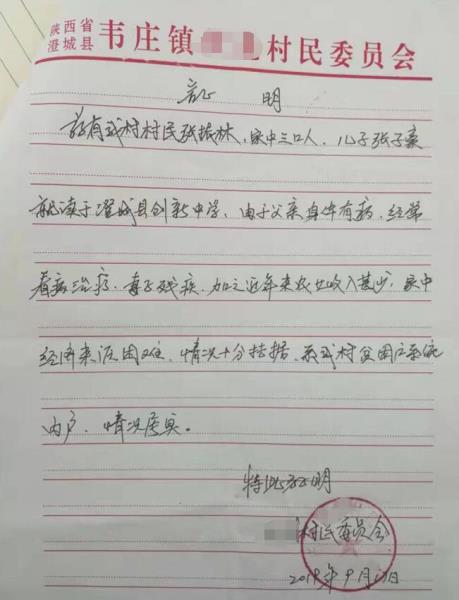 陕西省
澄城县
韦庄镇 村民委员会
证 明
兹有我村村民张振林,家中三口人,儿子张子豪
就读于澄城县创新中学,由于父亲身体有病,经常
看病治疗,妻子残疾,加之近年来农业收入甚少,家中
经济来源困难,情况十分拮据,系我村贫困户系统
内户,情况属实。
特此证明
村民委员会
2019年9月 日